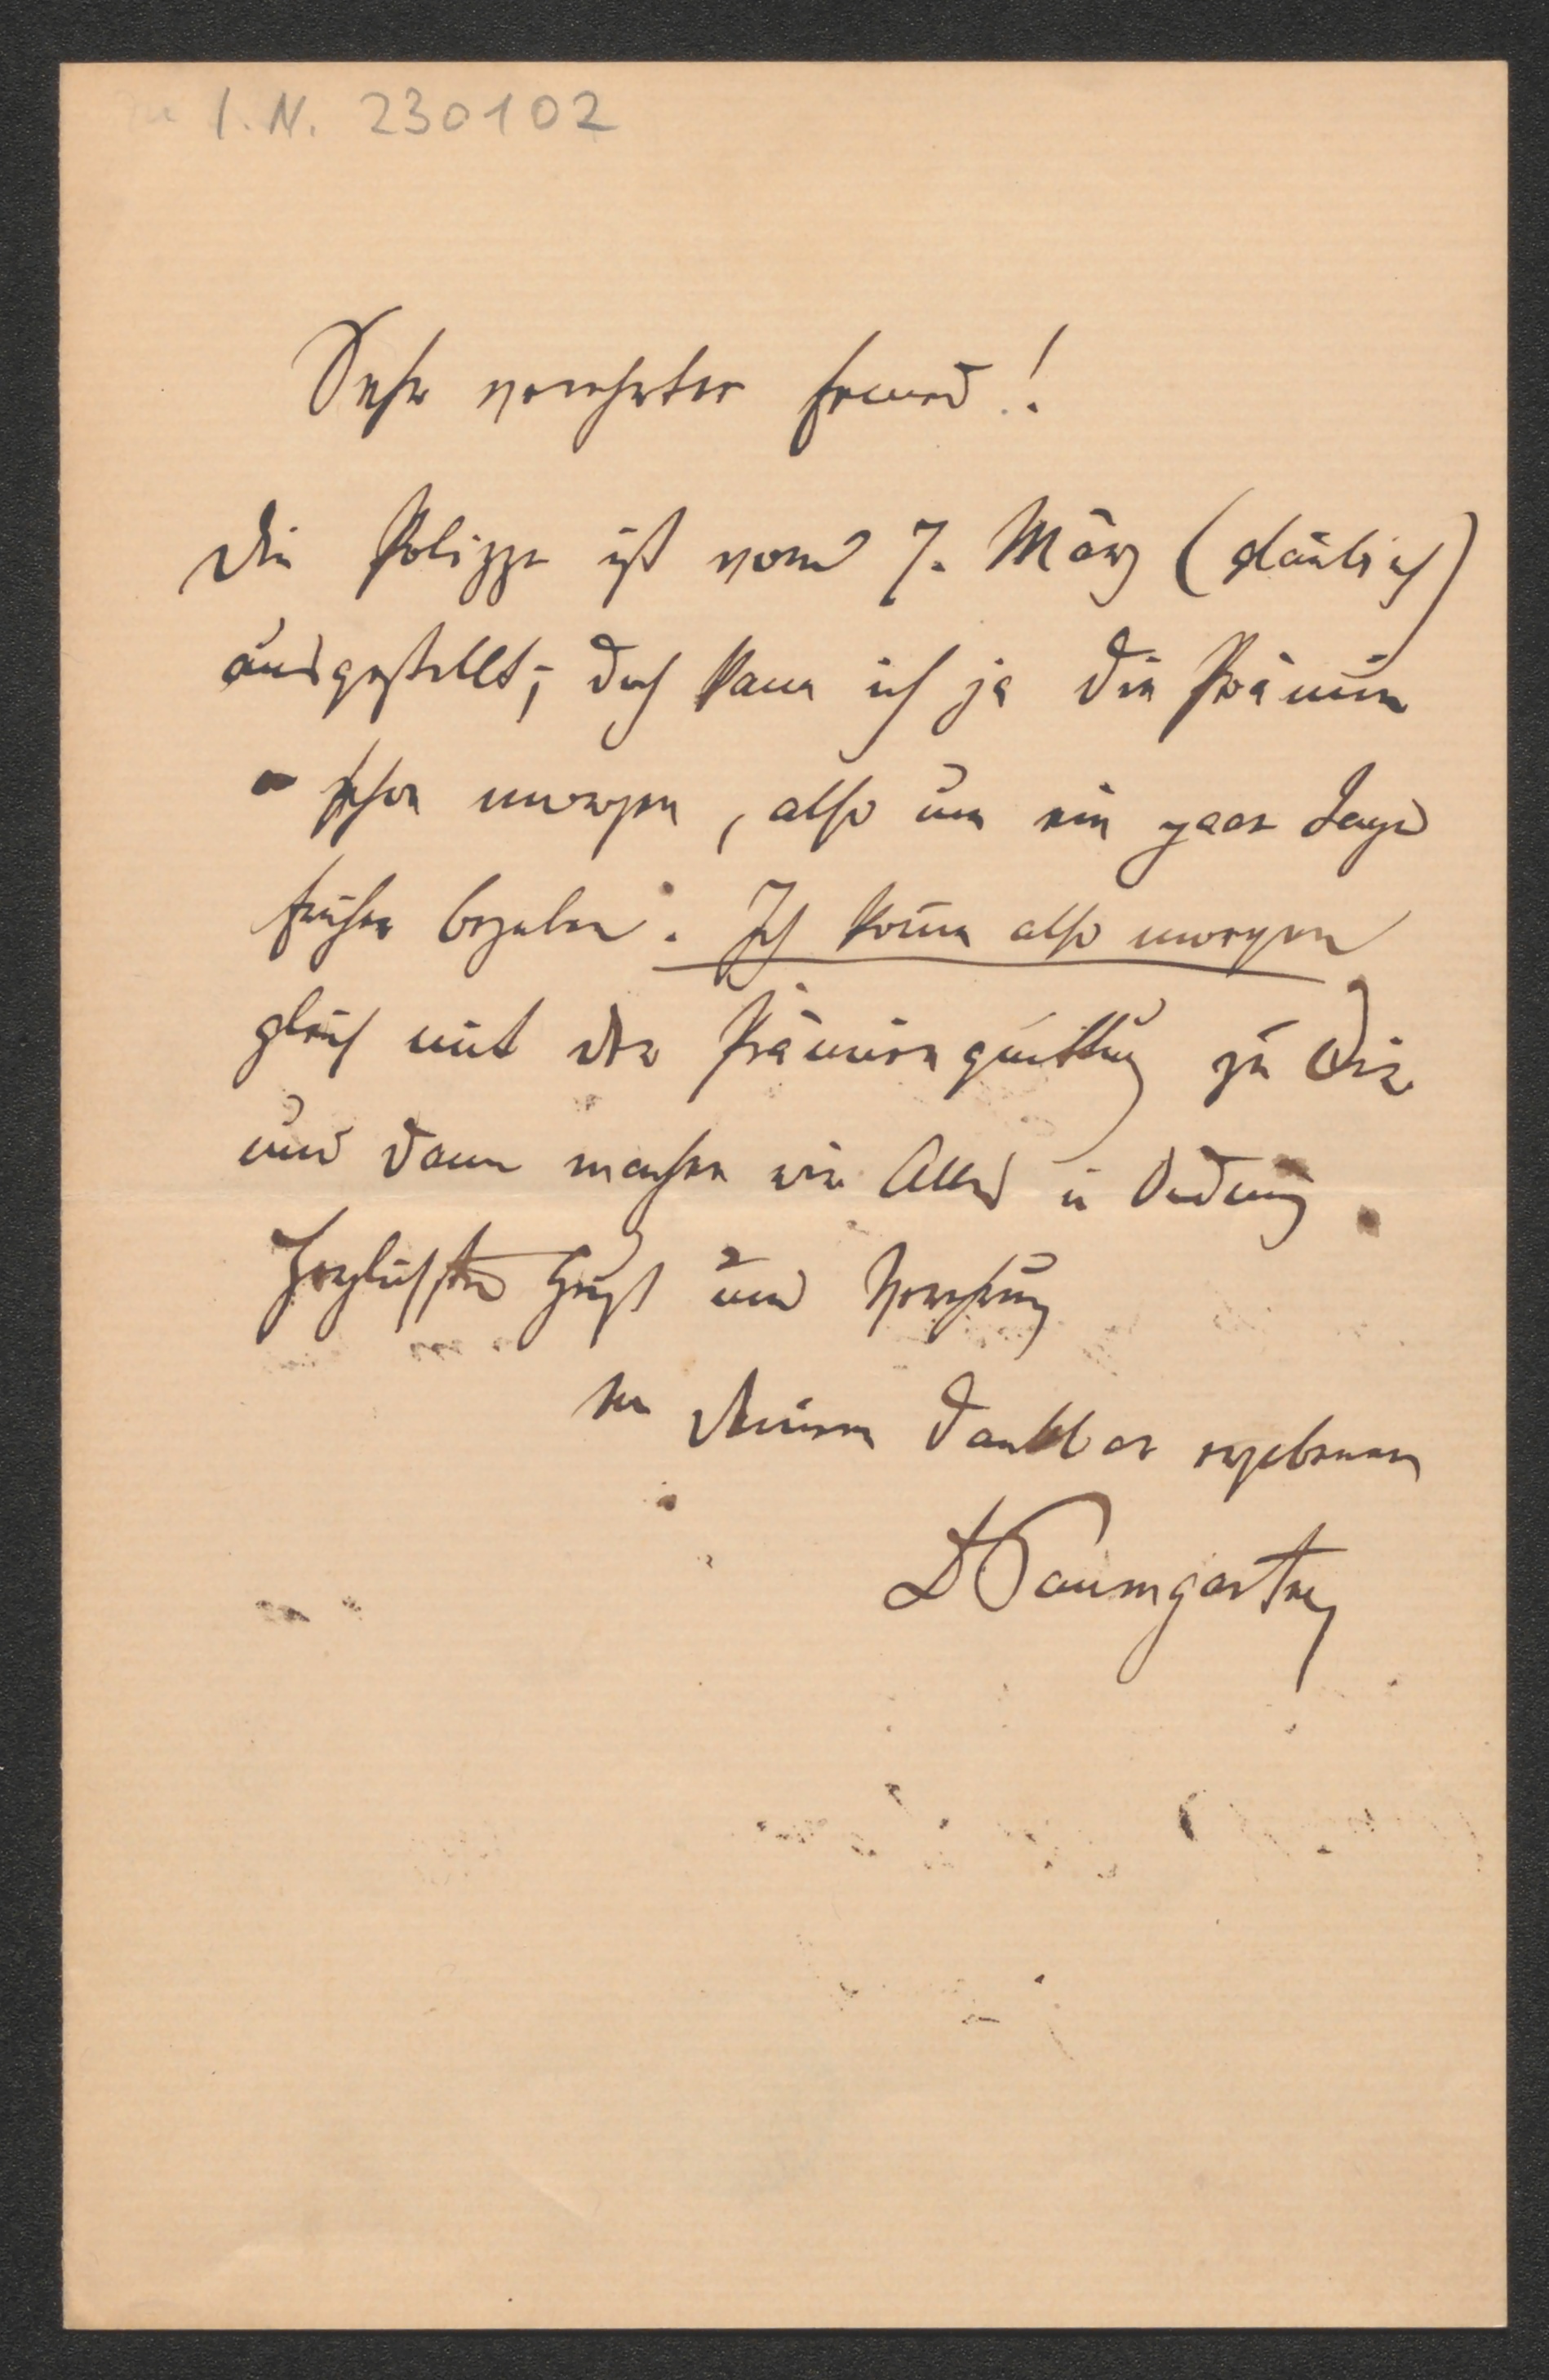 zu I.N. 230102
Sehr verehrter Freund!
Die Polizze ist vom 7. März (glaub ich)
ausgestellt; doch kann ich ja die Prämie
schon morgen, also um ein paar Tage
früher bezalen. Ich komme also morgen
gleich mit der Prämienquittung zu Dir
und dann machen wir Alles in Ordnung.
Herzlichsten Gruß und Verehrung
Deinem dankbar ergebenen
DPaumgartner